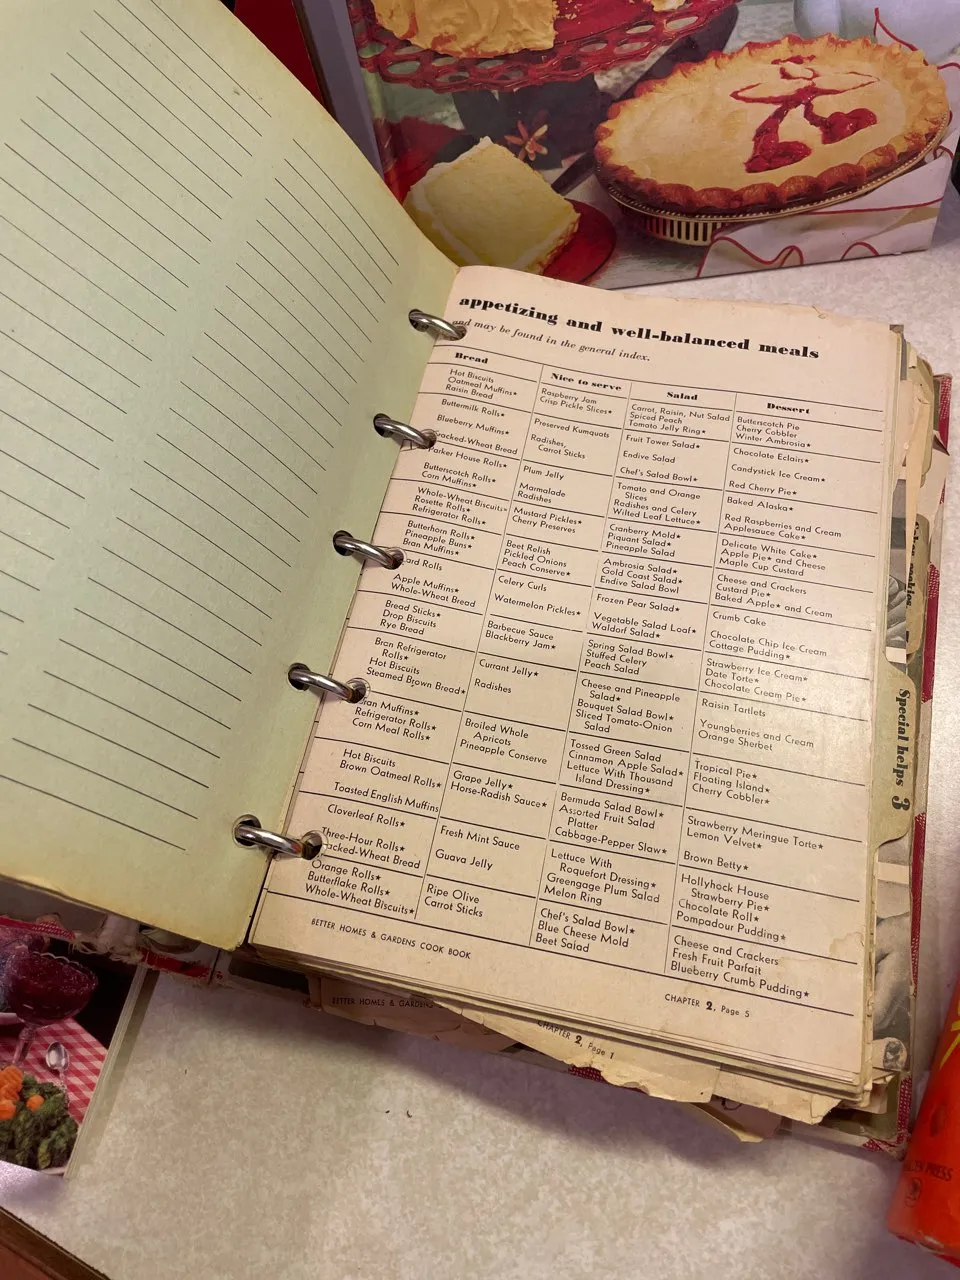 appetizing and well-balanced meals
and may be found in the general index.
Bread
Hot Biscuits
Oatmeal Muffins★
Raisin Bread
Buttermilk Rolls★
Blueberry Muffins★
racked-Wheat Bread
Parker House Rolls★
Butterscotch Rolls★
Corn Muffins★
Whole-Wheat Biscuits★
Rosette Rolls★
Refrigerator Rolls★
Butterhorn Rolls★
Pineapple Buns★
Bran Muffins★
ard Rolls
Apple Muffins★
Whole-Wheat Bread
Bread Sticks★
Drop Biscuits
Rye Bread
Bran Refrigerator
Rolls★
Hot Biscuits
Steamed Brown Bread★
ran Muffins★
Refrigerator Rolls★
Corn Meal Rolls★
Hot Biscuits
Brown Oatmeal Rolls★
Toasted English Muffins
Cloverleaf Rolls★
Three-Hour Rolls★
acked-Wheat Bread
Orange Rolls★
Butterflake Rolls★
Whole-Wheat Biscuits★
Nice to serve
Raspberry Jam
Crisp Pickle Slices★
Preserved Kumquats
Radishes,
Carrot Sticks
Plum Jelly
Marmalade
Radishes
Mustard Pickles★
Cherry Preserves
Beet Relish
Pickled Onions
Peach Conserve★
Celery Curls
Watermelon Pickles★
Barbecue Sauce
Blackberry Jam★
Currant Jelly★
Radishes
Broiled Whole
Apricots
Pineapple Conserve
Grape Jelly★
Horse-Radish Sauce★
Fresh Mint Sauce
Guava Jelly
Ripe Olive
Carrot Sticks
Salad
Carrot, Raisin, Nut Salad
Spiced Peach
Tomato Jelly Ring★
Fruit Tower Salad★
Endive Salad
Chef's Salad Bowl★
Tomato and Orange
Slices
Radishes and Celery
Wilted Leaf Lettuce★
Cranberry Mold★
Piquant Salad★
Pineapple Salad
Ambrosia Salad★
Gold Coast Salad★
Endive Salad Bowl
Frozen Pear Salad★
Vegetable Salad Loaf★
Waldorf Salad★
Spring Salad Bowl★
Stuffed Celery
Peach Salad
Cheese and Pineapple
Salad★
Bouquet Salad Bowl★
Sliced Tomato-Onion
Salad
Tossed Green Salad
Cinnamon Apple Salad★
Lettuce With Thousand
Island Dressing★
Bermuda Salad Bowl★
Assorted Fruit Salad
Platter
Cabbage-Pepper Slaw★
Lettuce With
Roquefort Dressing★
Greengage Plum Salad
Melon Ring
Chef's Salad Bowl★
Blue Cheese Mold
Beet Salad
Dessert
Butterscotch Pie
Cherry Cobbler
Winter Ambrosia★
Chocolate Eclairs★
Candystick Ice Cream★
Red Cherry Pie★
Baked Alaska★
Red Raspberries and Cream
Applesauce Cake★
Delicate White Cake★
Apple Pie★ and Cheese
Maple Cup Custard
Cheese and Crackers
Custard Pie★
Baked Apple★ and Cream
Crumb Cake
Chocolate Chip Ice Cream
Cottage Pudding★
Strawberry Ice Cream★
Date Torte★
Chocolate Cream Pie★
Raisin Tartlets
Youngberries and Cream
Orange Sherbet
Tropical Pie★
Floating Island★
Cherry Cobbler★
Strawberry Meringue Torte★
Lemon Velvet★
Brown Betty★
Hollyhock House
Strawberry Pie★
Chocolate Roll★
Pompadour Pudding★
Cheese and Crackers
Fresh Fruit Parfait
Blueberry Crumb Pudding★
BETTER HOMES & GARDENS COOK BOOK
CHAPTER 2, Page 5
BETTER HOMES & GARDENS
CHAPTER 2, Page 1
Special helps 3
PRESS